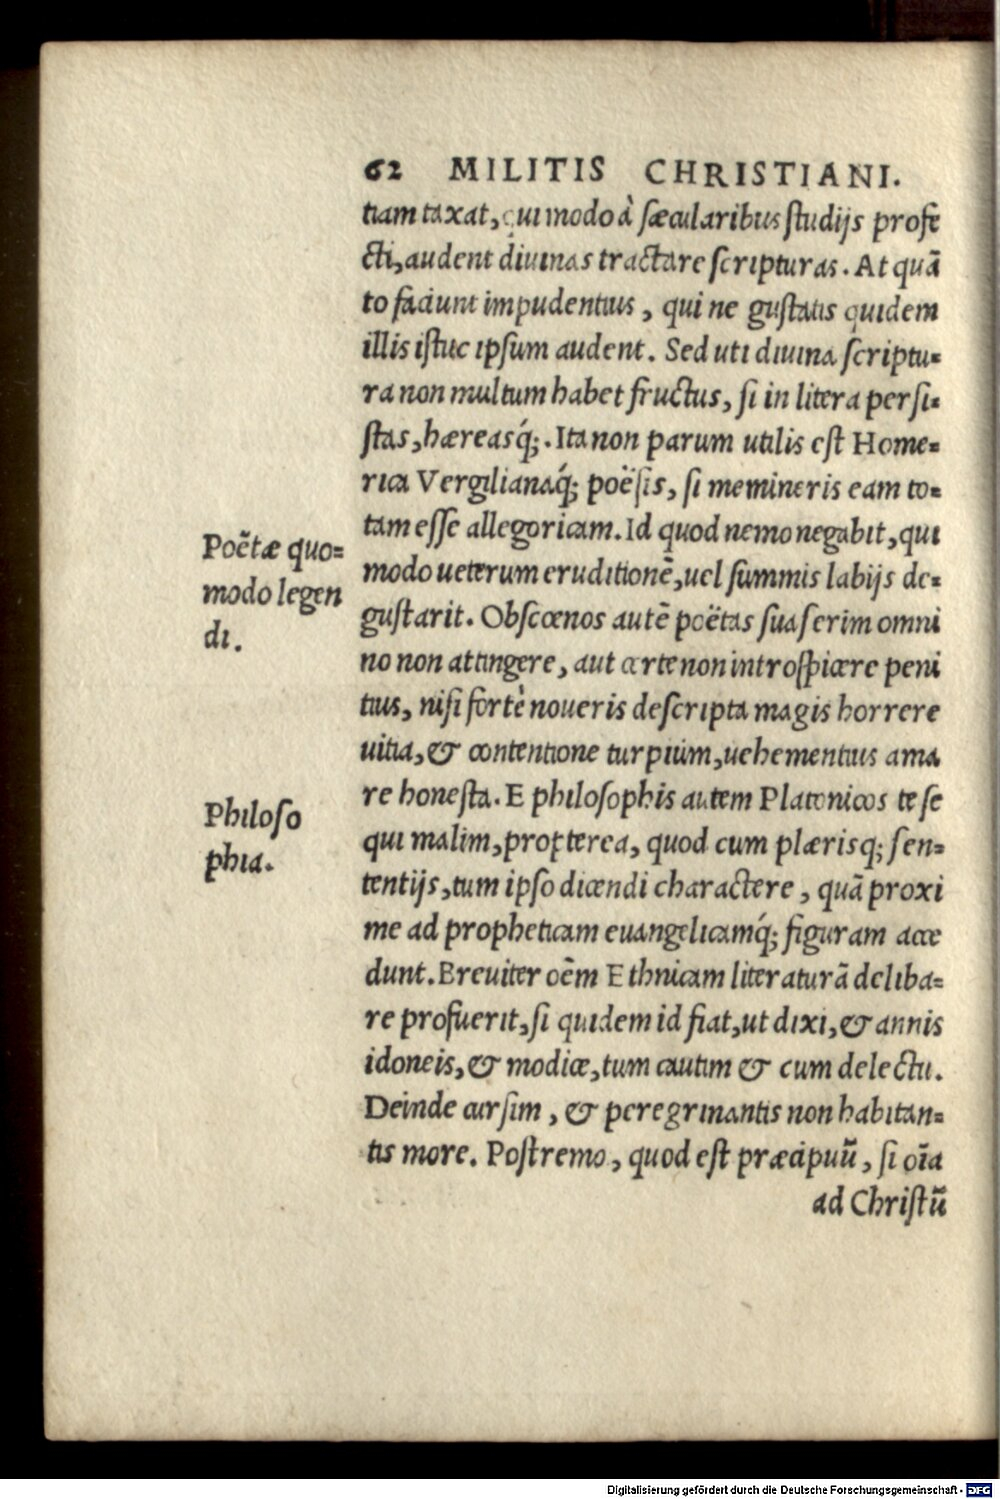 62 MILITIS CHRISTIANI.
tiam taxat, qui modo à sæcularibus studijs profe
cti, audent diuinas tractare scripturas. At quã
to faciunt impudentius, qui ne gustatis quidem
illis istuc ipsum audent. Sed uti diuina scriptu=
ra non multum habet fructus, si in litera persi=
stas, hæreasq́;. Ita non parum utilis est Home=
rica Vergilianaq́; poësis, si memineris eam to=
tam esse allegoricam. Id quod nemo negabit, qui
Poẽtæ quo=
modo ueterum eruditionẽ, uel summis labijs de=
modo legen
gustarit. Obscœnos autẽ poëtas suaserim omni
di.
no non attingere, aut certe non introspicere peni
tius, nisi fortè noueris descripta magis horrere
uitia, & contentione turpium, uehementius ama
re honesta. E philosophis autem Platonicos te se
Philoso
qui malim, propterea, quod cum plærisq; sen=
phia.
tentijs, tum ipso dicendi charactere, quã proxi
me ad propheticam euangelicamq́; figuram acce
dunt. Breuiter oẽm Ethnicam literaturã deliba=
re profuerit, si quidem id fiat, ut dixi, & annis
idoneis, & modice, tum cautim & cum delectu.
Deinde cursim, & peregrinantis non habitan=
tis more. Postremo, quod est præcipuũ, si oĩa
ad Christũ
Digitalisierung gefördert durch die Deutsche Forschungsgemeinschaft - DFG